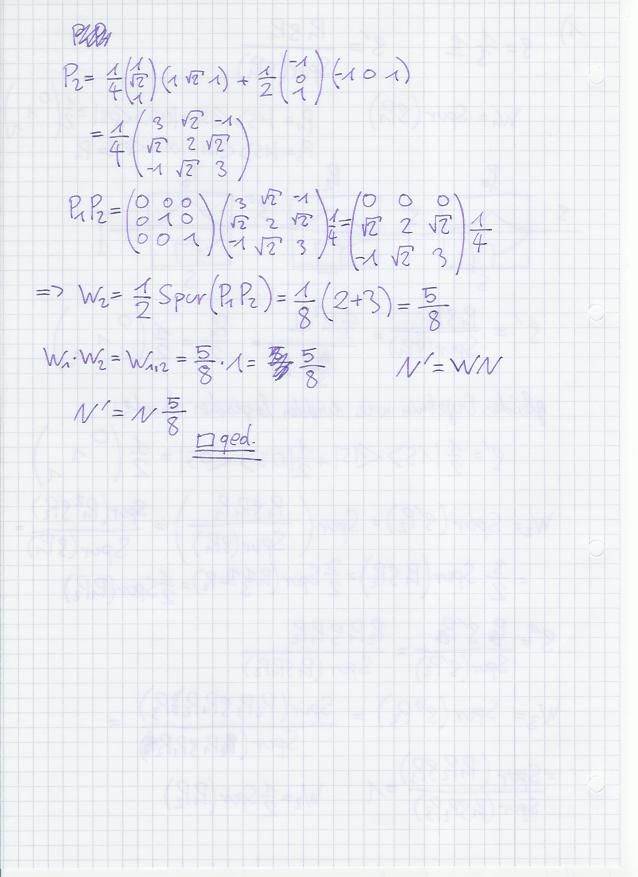 P₂ = 1/4 (1 √2 1)ᵀ (1 √2 1) + 1/2 (-1 0 1)ᵀ (-1 0 1)
= 1/4 (3 √2 -1; √2 2 √2; -1 √2 3)
P₁P₂ = (0 0 0; 0 1 0; 0 0 1) (3 √2 -1; √2 2 √2; -1 √2 3) 1/4 = (0 0 0; √2 2 √2; -1 √2 3) 1/4
=> W₂ = 1/2 Spur(P₁P₂) = 1/8 (2+3) = 5/8
W₁·W₂ = W₁,₂ = 5/8 · 1 = 5/8 N' = WN
N' = N 5/8
□ qed.